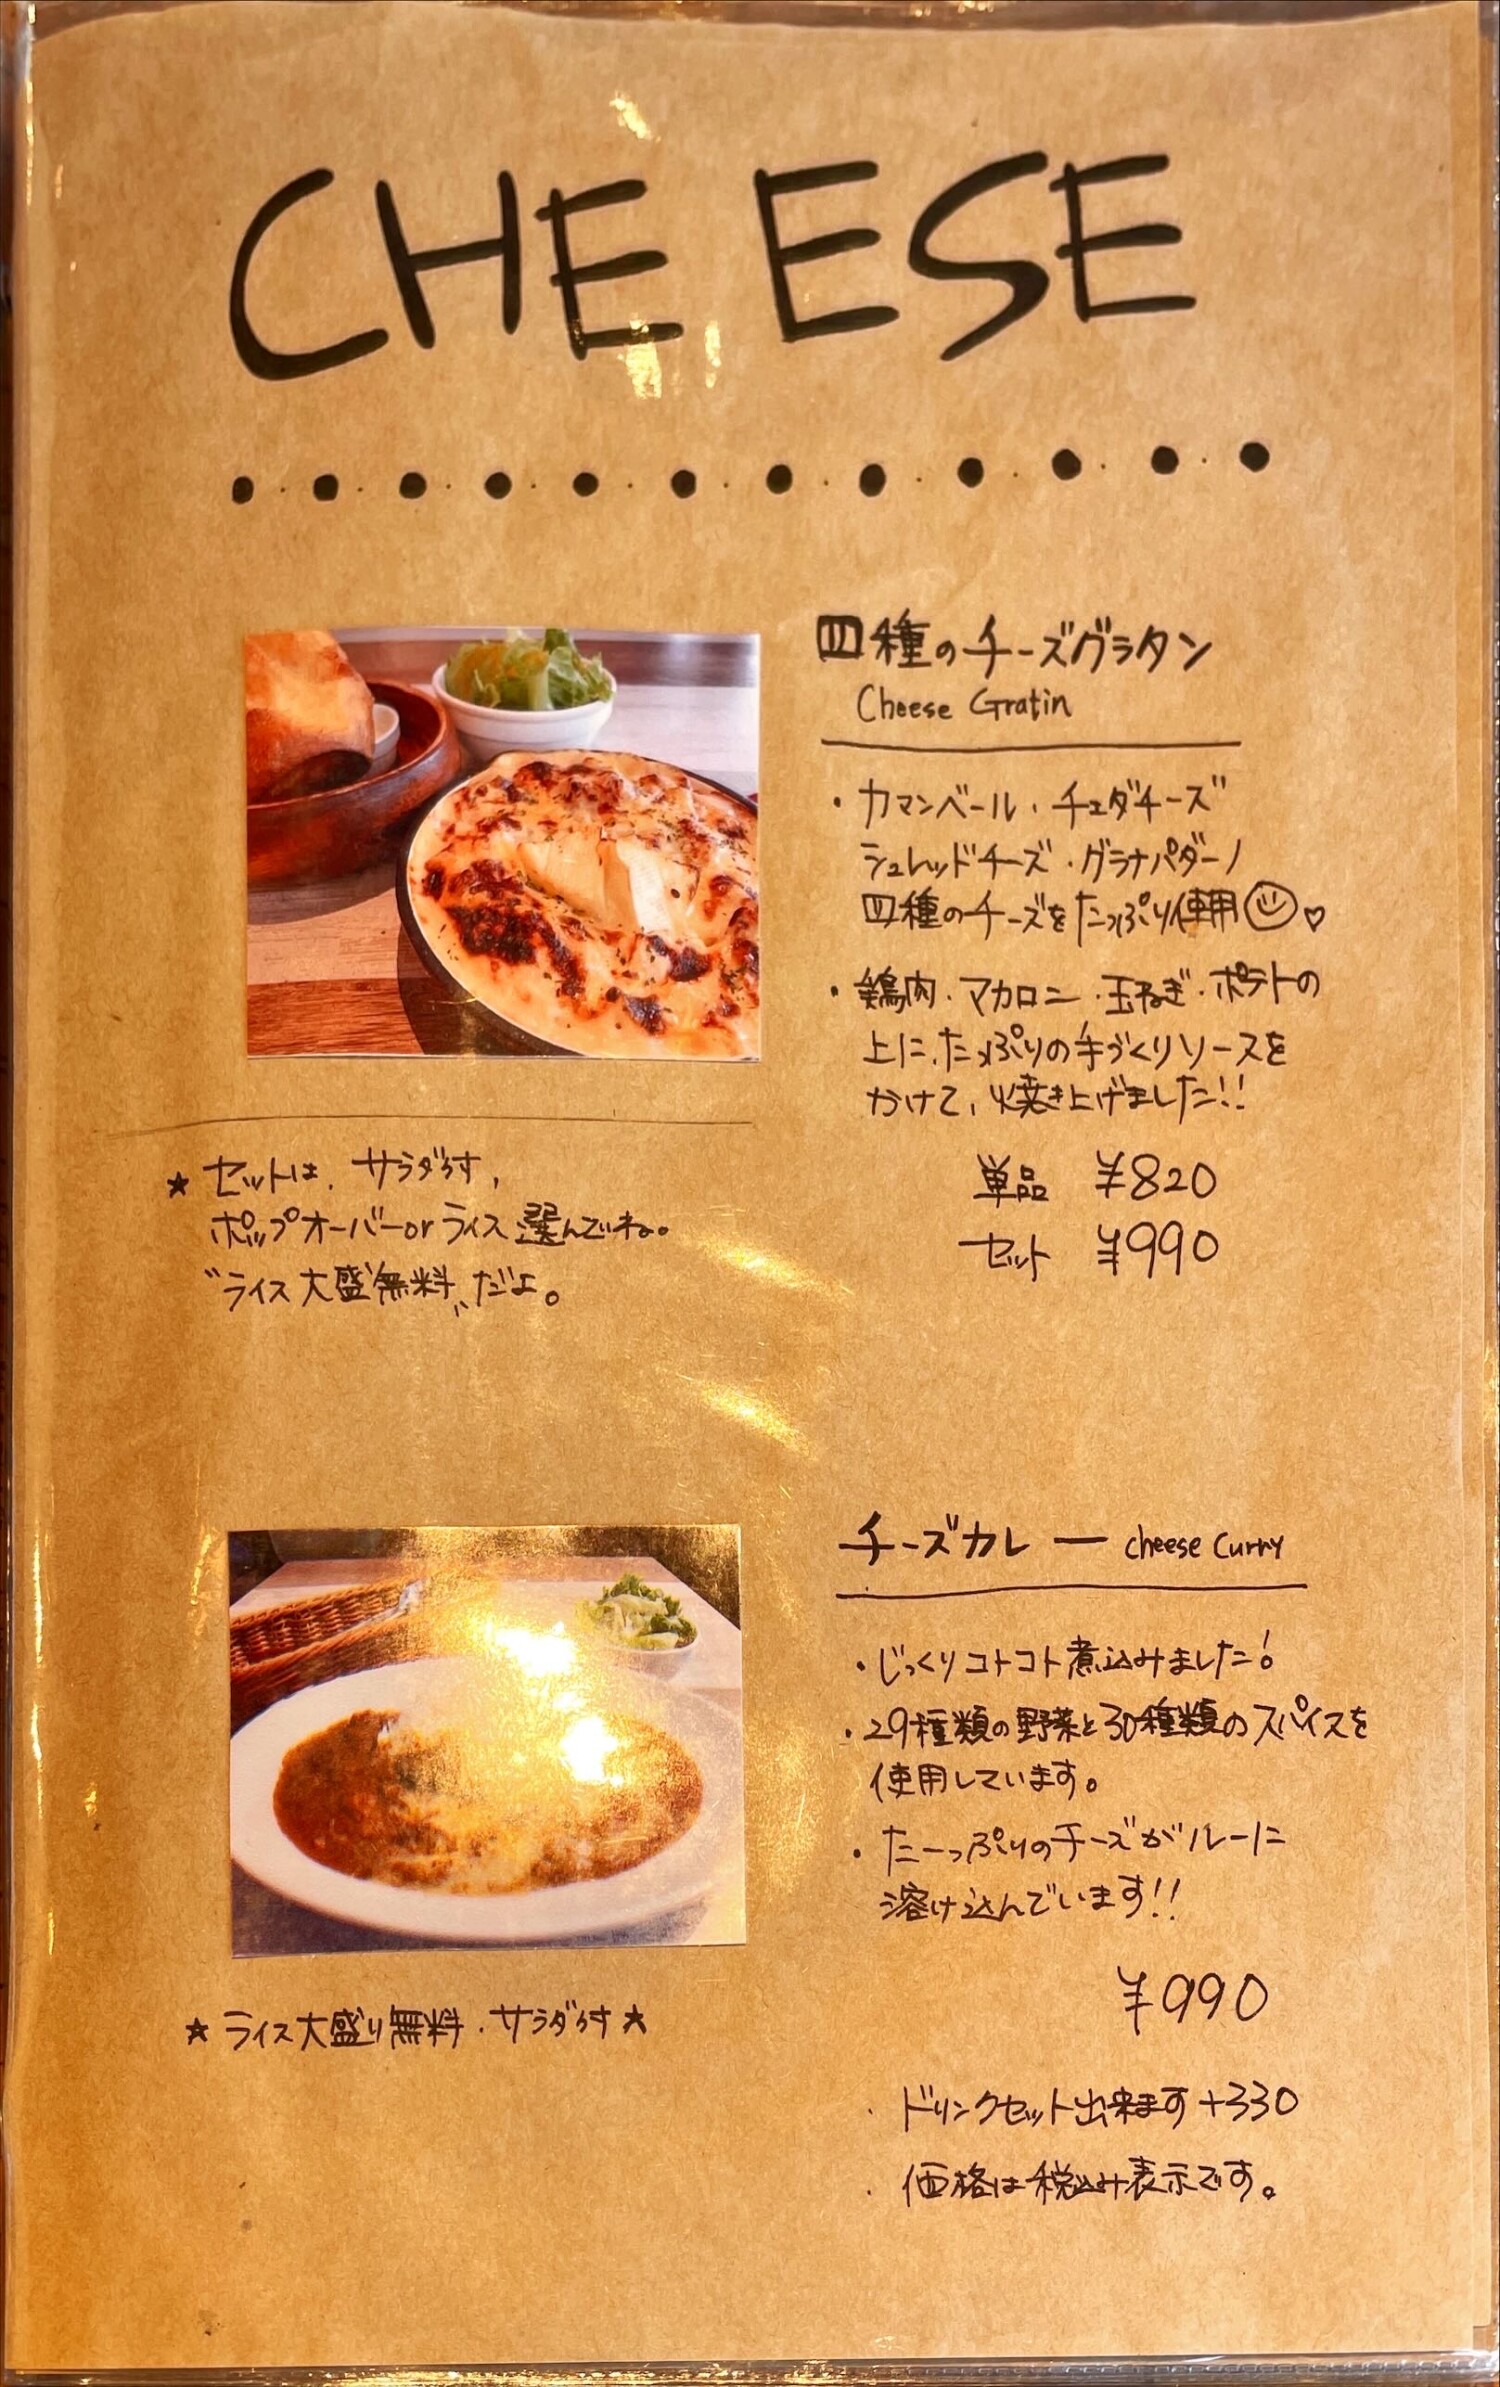 CHEESE
四種のチーズグラタン
Cheese Gratin
・カマンベール・チェダチーズ
シュレッドチーズ・グラナパダーノ
四種のチーズをたっぷり使用
・鶏肉・マカロニ・玉ねぎ・ポテトの
上に、たっぷりの手づくりソースを
かけて、焼き上げました!!
単品 ¥820
セット ¥990
★ セットは、サラダ付す、
ポップオーバーorライス選んでね。
"ライス大盛無料"だよ。
チーズカレー cheese curry
・じっくりコトコト煮込みました!
・29種類の野菜と30種類のスパイスを
使用しています。
・たーっぷりのチーズがルーに
溶け込んでいます!!
¥990
★ ライス大盛り無料・サラダ付す★
・ドリンクセット出来ます+330
・価格は税込み表示です。